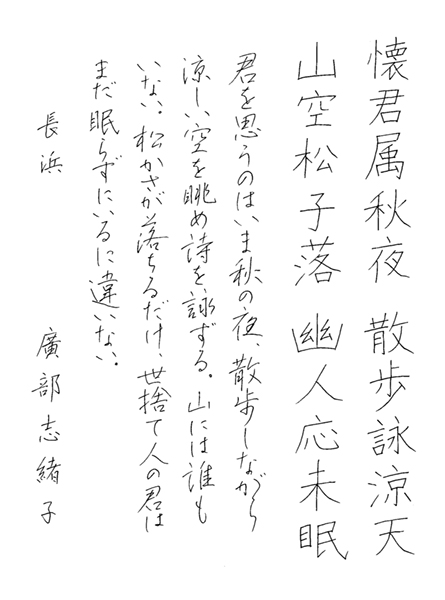 懐君属秋夜 散歩詠涼天
山空松子落 幽人応未眠
君を思うのはいま秋の夜、散歩しながら
涼しい空を眺め詩を詠ずる。山には誰も
いない。松かさが落ちるだけ、世捨て人の君は
まだ眠らずにいるに違いない。
長浜 廣部志緒子